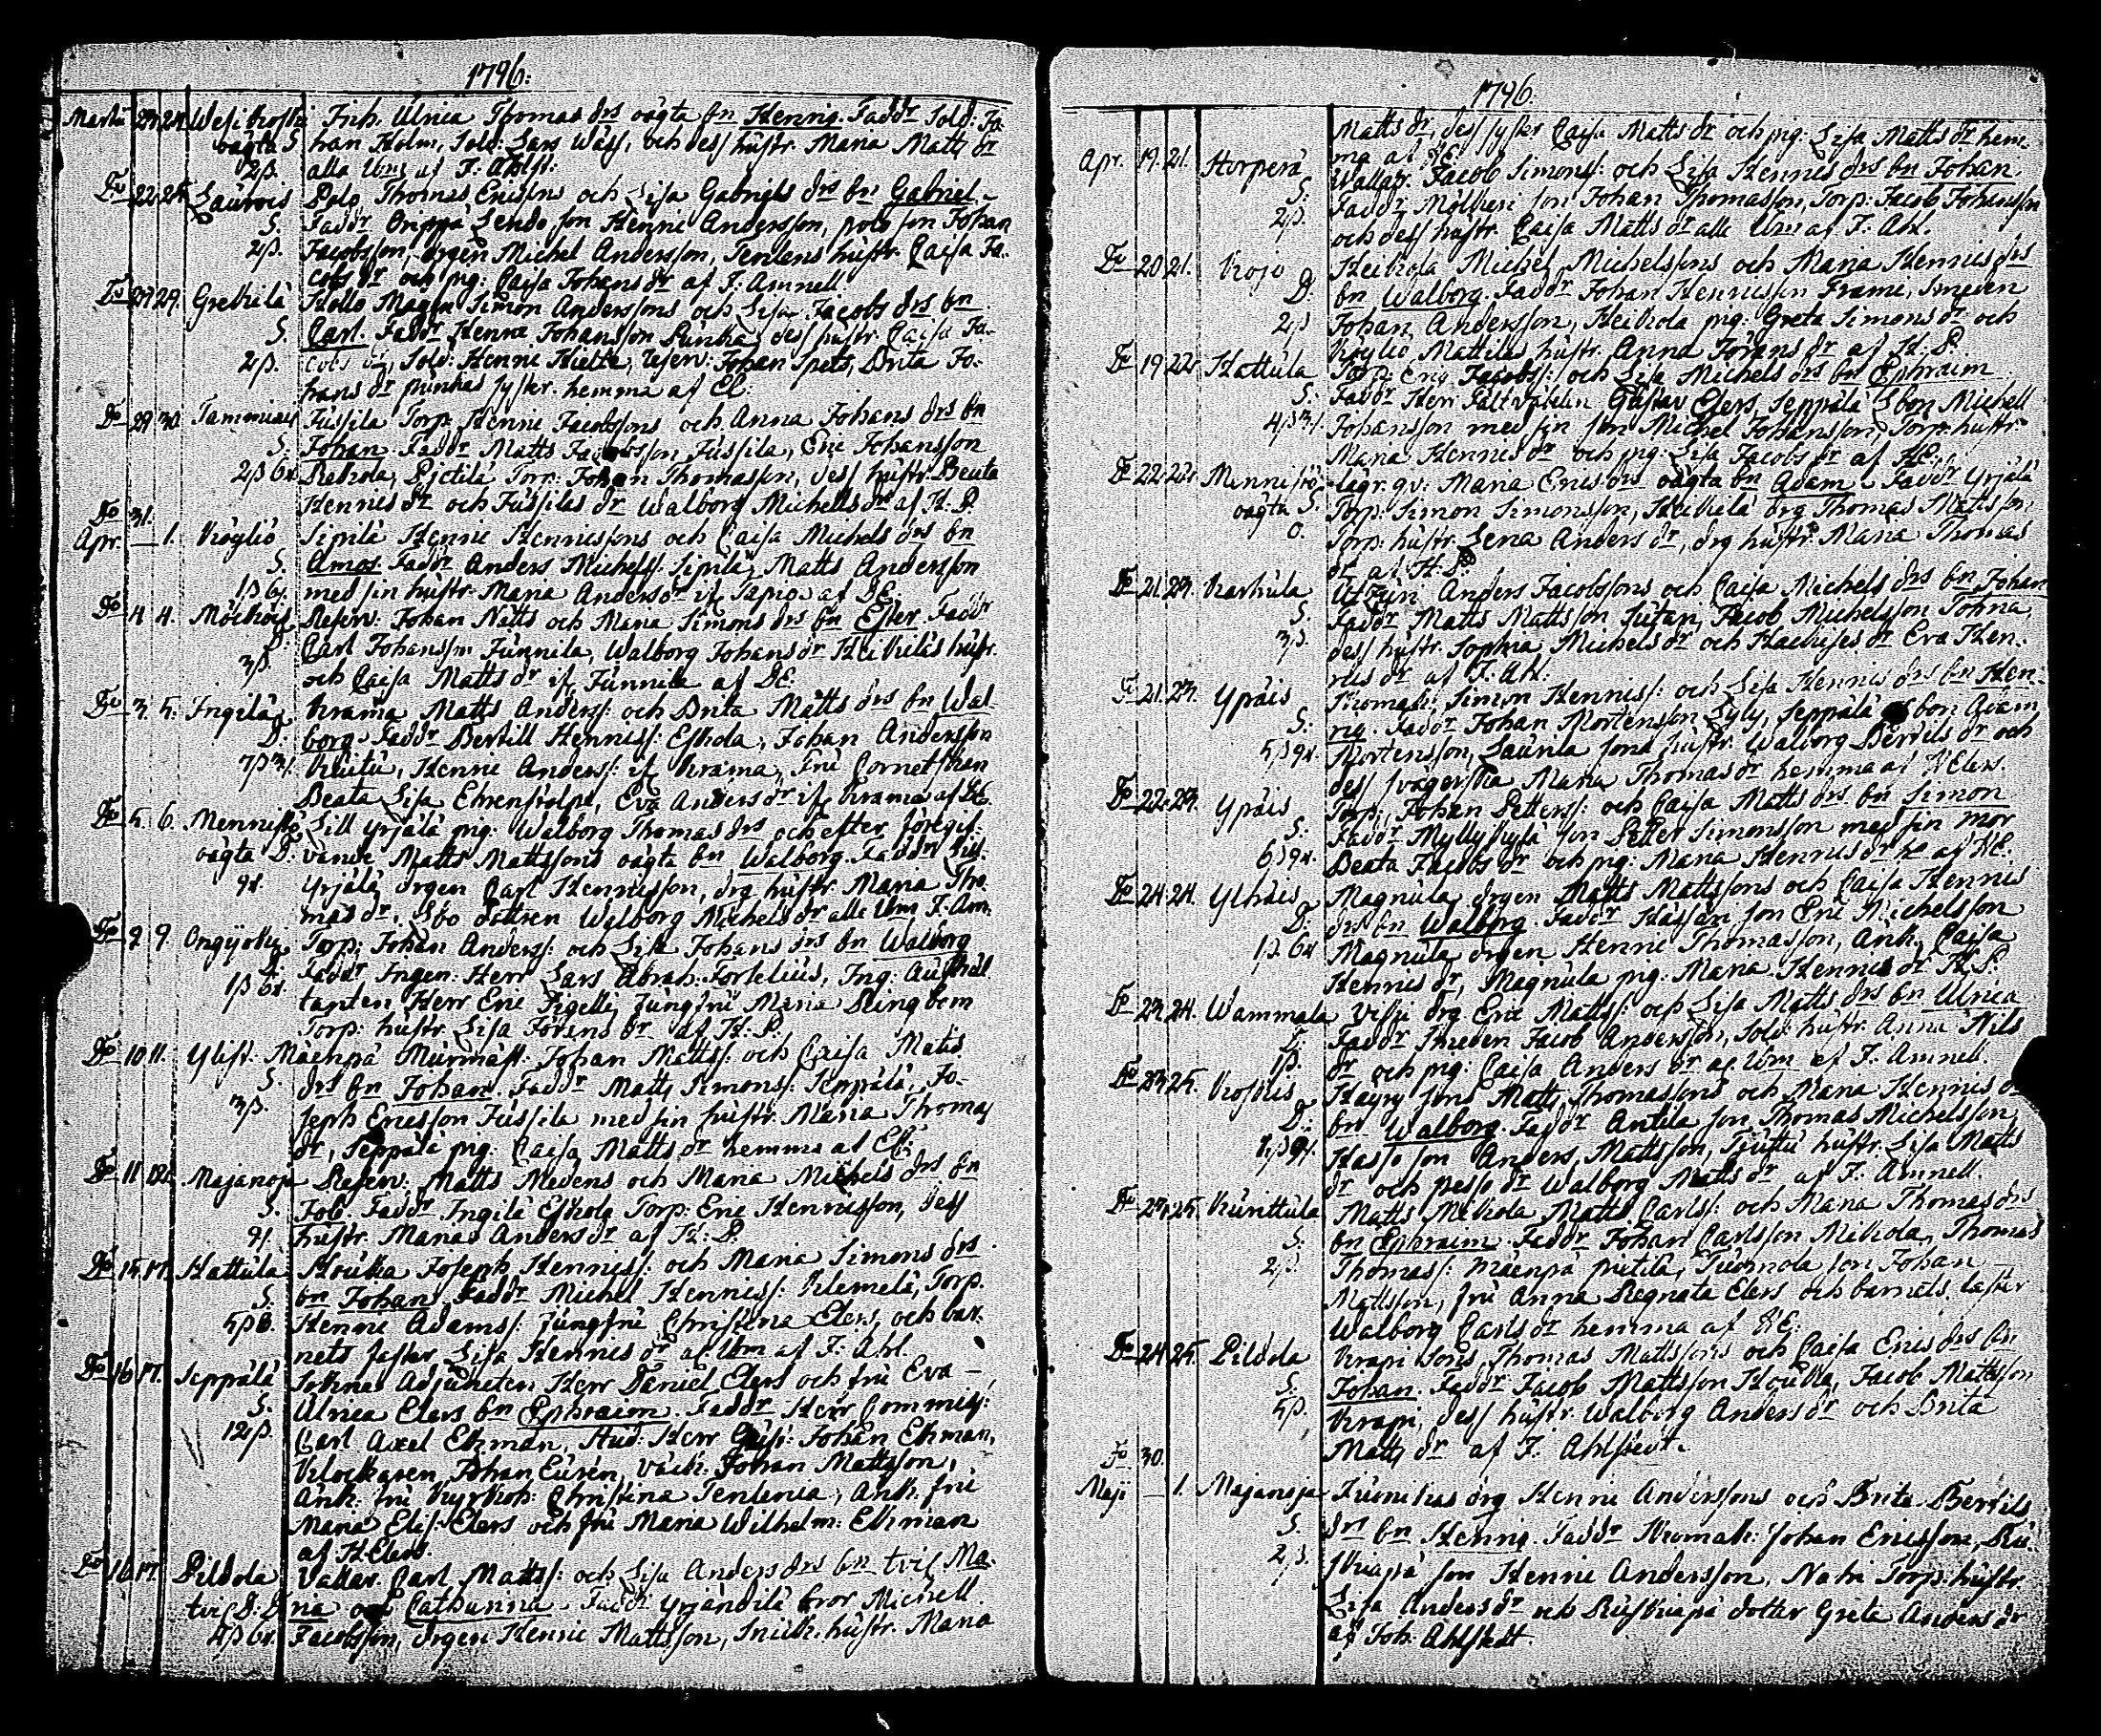 1796:
Martii 23. 24. Wesikoski Inh. Ulrica Thomas drs oägta bn Hennig. Faddr Sold: Jo-
oägta S han Holm, Sold: Lars Wass, och dess hustr. Maria Matts dr
2ß. alla Ung af J: Ahlst:
Do 22. 24. Laurois Polo Thomas Ericssns och Lisa Gabriels drs bn Gabriel.
S. Faddr Orippä Lendo son Henric Andersson, polo son Johan
2ß. Jacobsson, drgen Michel Andersson, Tenlens hustr. Caisa Ja-
cobs dr och pig: Caisa Johans dr af J: Amnell
Do 27 29. Grekilä Kollo Magn Simon Anderssons och Lisa Jacobs drs bn
S. Carl. Faddr Henric Johansson Punka, dess hustr. Caisa Ja-
2ß. cobs dr, Sold: Henric Hielte, reserv: Johan Spets, Brita Jo-
hans dr punkas syster. hemma af EE.
Do 29 30. Tammiais Jussila Torp. Henric Jacobssons och Anna Johans drs bn
S. Johan. Faddr Matts Jacobsson Jussila, Eric Johansson
2ß 6r. Rekola, Pietilä Torp: Johan Thomasson, dess hustr. Beata
Hennics dr och Jussilas dr Walborg Michells dr af H: P.
Do 31.
Apr. — 1. Köyliö Sipilä Henric Henricssons och Caisa Michels drs bn
S. Amos. Faddr Anders Michelss: Sipilä, Matts Andersson
1ß 6r. med sin hustr. Maria Anders dr if Tapio af DE.
Do 4 4. Möckois Reserv: Johan Nätts och Maria Simons drs bn Ester Faddr
3ß. Carl Johansson Junnila, Walborg Johans dr Heikiläs hustr.
och Caisa Matts dr if Junnila af DE.
Do 3. 5. Ingilä Krama Matts Anderss: och Brita Matts drs bn Wal-
D. borg. Faddr Bertill Henriss: Eskola, Johan Andersson
Kuitu, Henric Anderss: if Krama, Fru Cornetskan
Beata Lisa Ehrenstolpe, Eva Anders dr if Krama af DE.
Do 5. 6. Mennistö Lill Yrjälä pig: Walborg Thomas drs och efter föregif-
oägta D. vande Matts Mattssons oägta bn Walborg. Faddr Lill
9r. Yrjälä drgen Carl Henricsson, drg hustr. Maria Tho-
mas dr, Lbo dottren Walborg Michels dr alla Um J: Am.
Do 9. 9. Ongijoki Torp: Johan Anderss: och Lisa Johans drs bn Walborg
D. Faddr Ingen: Herr Lars Abrah: Forselius, Ing: Auskul
1ß 6r. tanten Herr Eric Tigell, Jungfru Maria Ringbom
Torp: hustr. Lisa Jörans dr af H: P.
Do 10 11. Ylist. Mäenpä Murmäst. Johan Mattss: och Caisa Matts
S. drs bn Johan. Faddr Matts Simonss: Seppälä, Jo-
3ß. seph Ericsson Jussila med sin hustr. Maria Thomas
dr, Seppälä pig: Caisa Matts dr hemma af EE.
Do 11 12. Majanoja Reserv: Matts Medens och Maria Michels drs bn
S. Job. Faddr Ingilä Eskola Torp: Eric Henricsson, dess
9r. hustr. Maria Anders dr af H: P.
Do 15. 17. Hattula Kouka Joseph Henricss: och Maria Simons drs
S. bn Johan. Faddr Michel Henricss: Klemelä, Torp.
5ß 8. Henric Adamss: Jungfru Christina Elers, och bar-
nets faster Lisa Henrics dr af Um af J: Ahl.
Do 16 17. Seppälä Soknas Adjuncten Herr Daniel Elers och fru Eva —
S. Ulrica Elers bn Ephraim. Faddr Herr Commiss:
12ß. Carl Axel Ekman, Stud: Herr Gust: Johan Ekman,
Klockaren Johan Euren, väck: Johan Mattsson,
Änk: fru Kyrkoh: Christina Tenlenia, Änk. fru
Maria Elis: Elers och fru Maria Wilhelm: Ekman
af H: Elers.
Do 16 17. Pildola Vallar. Carl Mattss: och Lisa Anders drs bn tvil. Ma-
tvil. D. D ria och Catharina. Faddr Yrjändilä bror Michell
4ß 6r. Jacobsson, drgen Henric Mattsson, Snick. hustr. Maria
1796.
Matts dr, dess syster Caisa Matts dr och pig: Lisa Matts dr hem-
ma af HE.
Apr. 19. 21. Korpera Wallar. Jacob Simonss: och Lisa Hennes drs bn Johan
S. Faddr Mölleri son Johan Thomasson, Torp: Jacob Johansson
2ß. och dess hustr. Caisa Matts dr alle Um af J: Ahl.
Do 20 21. Kojo Heikola Michel Michelssons och Maria Henrics drs
D. bn Walborg. Faddr Johan Henricsson Frami, Smeden
2ß Johan Andersson, Heikola pig: Greta Simons dr och
Köyliö Mattilas hustr. Anna Jörans dr af H: P.
Do 19 22. Hattula Torp: Eric Jacobss: och Lisa Michels drs bn Ephraim
S. Faddr Herr Fältväbeln Gustav Elers, Seppälä Lbon Michell
Johansson med sin son Michel Johansson, Torp: hustr
Maria Henrics dr och pig: Lisa Jacobs dr af HE.
Do 22 22. Mennistö lägr. qv: Maria Erics drs oägta bn Adam. Faddr Yrjälä
oägta S. Torp: Simon Simonsson, Heikilä drg Thomas Mattsson,
0. Torp: hustr. Lena Anders dr, drg hustr. Maria Thomas
dr af H: P.
Do 21. 23. Karhula Utbyn Anders Jacobssons och Caisa Michels drs bn Johan
S. Faddr Matts Mattsson Sutari, Jacob Michelsson Tohna,
3ß. dess hustr. Sophia Michels dr och Hackises dr Eva Hen-
rics dr af J: Ahl.
Do 21. 23. Ypäis Thomas: Simon Henricss: och Lisa Henrics drs bn Hen-
S. rig. Faddr Johan Mortensson Syly, Seppälä Lbon Adam
5ß 9r. Mortensson, Launla sons hustr. Walborg Bertils dr och
dess svägerska Maria Thomas dr hemma af H: Elers.
Do 22 23. Ypäis Torp: Johan Petterss: och Caisa Matts drs bn Simon
S. Faddr Myllykylä son Petter Simonsson med sin mor
6ß 9r. Beata Jacobs dr och pig: Maria Henrics dr ha af HE.
Do 24 24. Ylhäis Magnula drgen Matts Mattssons och Caisa Henrics
D. drs bn Walborg. Faddr Hassan son Eric Michelsson
1ß 6r Magnula drgen Henric Thomasson, Änk. Caisa
Henrics dr, Magnula pig: Maria Henrics dr H: P.
Do 23 24. Wammala Vissi drg Eric Mattss: och Lisa Matts drs bn Ulrica
D. Faddr Smeden Jacob Andersson, Sold: hustr. Anna Nils
1ß. dr och pig: Caisa Anders dr af Um af J: Amnell.
Do 23 25. Koskis Käyry sons Matts Thomassons och Maria Henrics d
D. bn Walborg. Faddr Antila son Thomas Michelsson,
Hasso son Anders Mattsson, Tuittu hustr. Lisa Matts
dr och Pesso dr Walborg Matts dr af J: Amnell.
Do 24 25. Kurittula Matts Mikola Matts Carlss: och Maria Thomas drs
S. bn Ephraim. Faddr Johan Carlsson Mikola, Thomas
2ß. Thomass: Mäenpä Pietilä, Tuomola son Johan
Mattsson, fru Anna Regnata Elers och barnets faster
Walborg Carls dr hemma af HE.
Do 24 25. Pildola Krapi Sons Thomas Mattssons och Caisa Erics drs bn
S. Johan. Faddr Jacob Mattsson Kouka, Jacob Mattsson
5ß. Krapi, dess hustr. Walborg Anders dr och Brita
Matts dr af J: Ahlstedt.
Do 30.
Maji — 1. Majanoja Junisus drg Henric Anderssons och Brita Bertils
S. drs bn Henrig. Faddr Kromak: Johan Ericsson, Rü-
2ß. skiapä son Henric Andersson, Nahi Torp: hustr.
Lisa Anders dr och Ruskiapä dotter Greta Anders dr
af Joh: Ahlstedt.